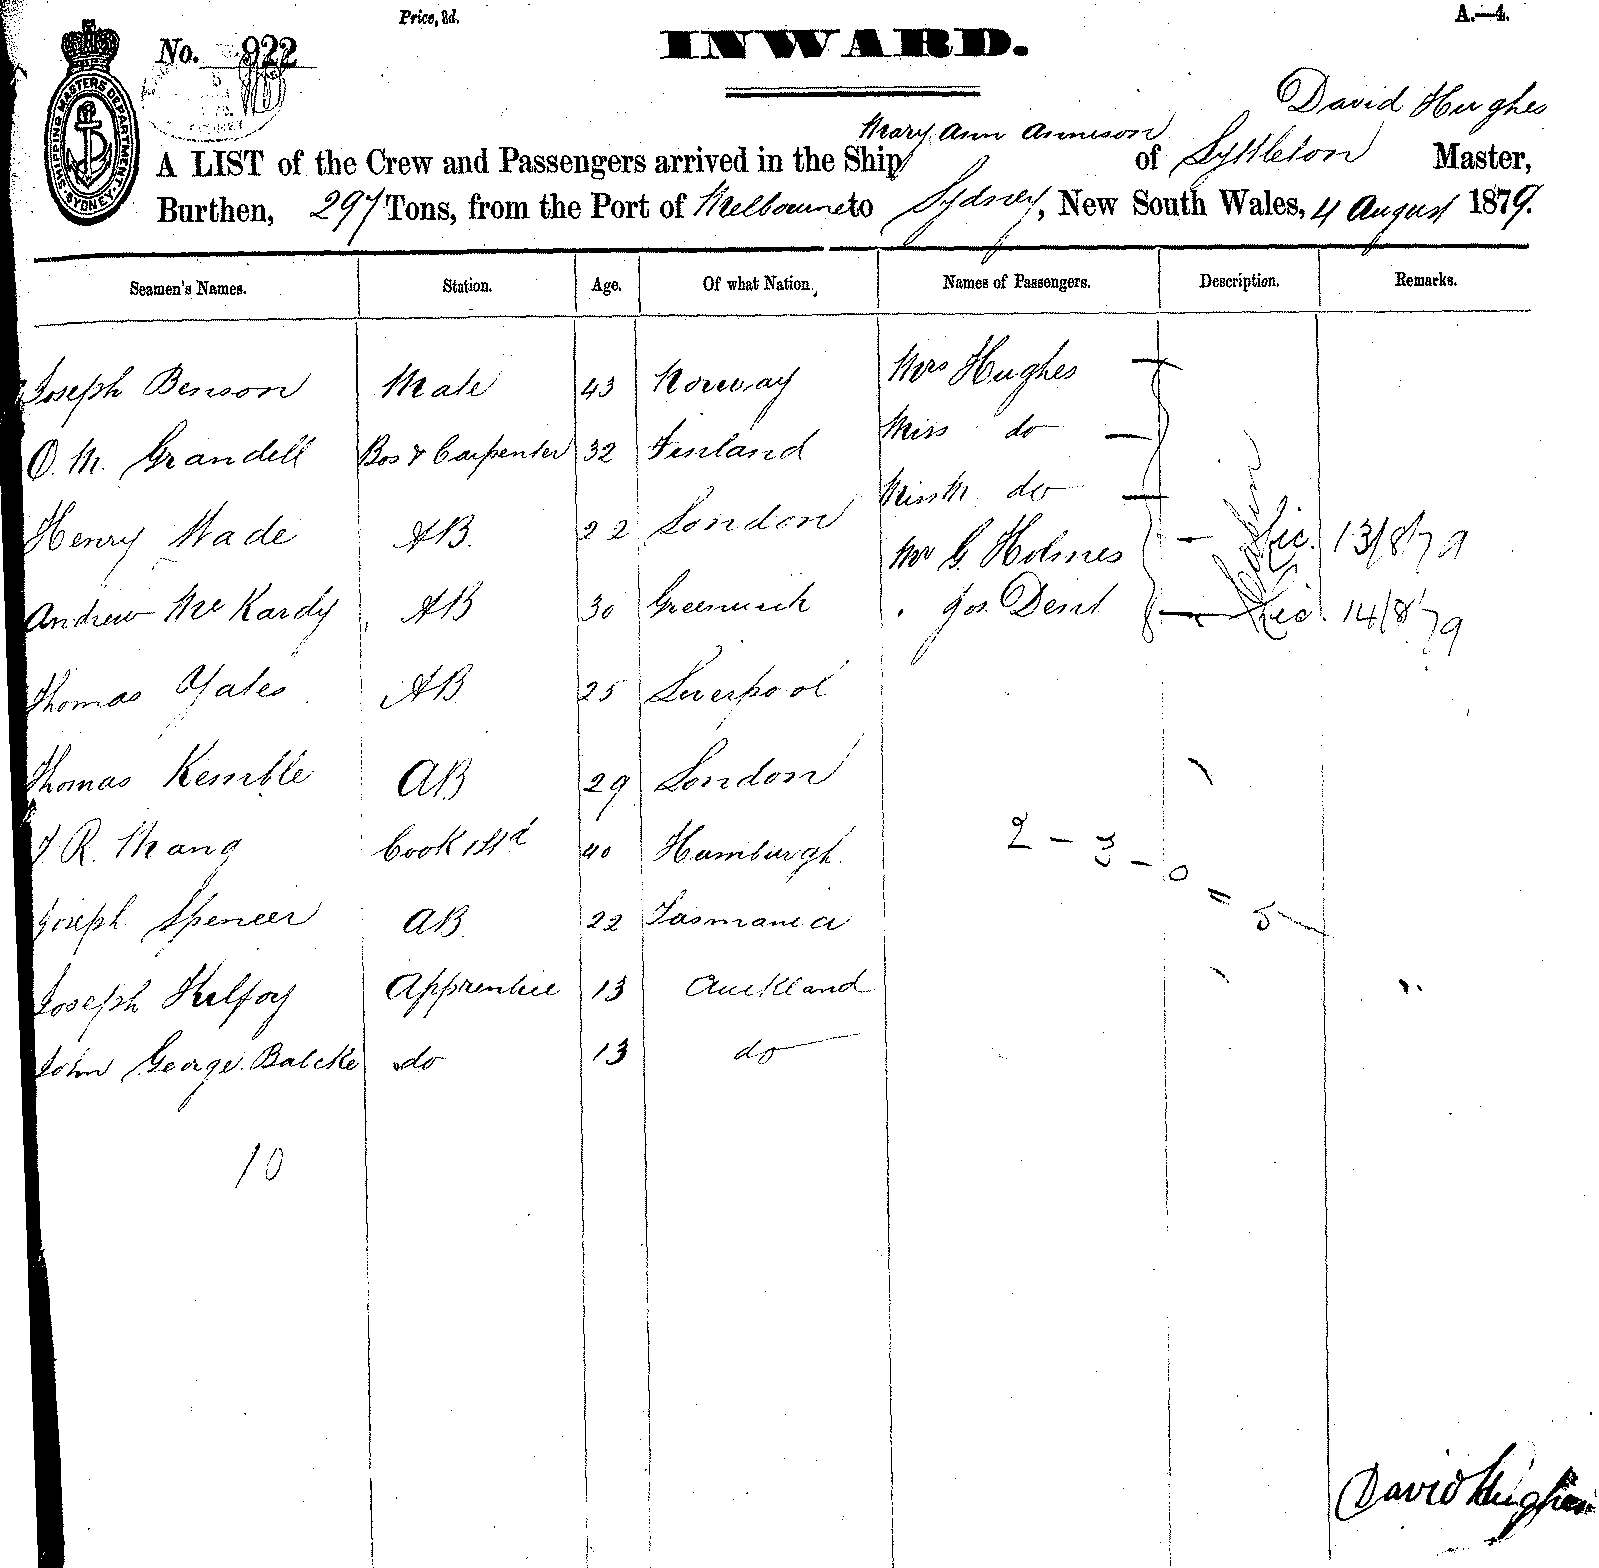 Price, 3d.
A.—4.
No. 922
INWARD.
SHIPPING MASTERS DEPARTMENT SYDNEY
David Hughes
Mary Ann Annison
A LIST of the Crew and Passengers arrived in the Ship of Lyttleton Master,
Burthen, 297 Tons, from the Port of Melbourne to Sydney, New South Wales, 4 August 1879.
Seamen's Names. Station. Age. Of what Nation. Names of Passengers. Description. Remarks.
Joseph Benson Mate 43 Norway Mrs Hughes
O. M. Grandell Bos & Carpenter 32 Finland Miss do
Miss M. do
Henry Wade AB. 22 London Mr G. Holmes 13/8/79
Andrew McKardy AB 30 Greenwich Jos. Dent 14/8/79
Thomas Yates AB 25 Liverpool
Thomas Kemble AB 29 London
R. Mang Cook & Std 40 Hamburgh.
2 - 3 - 0 = 5
Joseph Spencer AB. 22 Tasmanea
Joseph Apprentice 13 Auckland
John George Balcke do 13 do
10
David Hughes